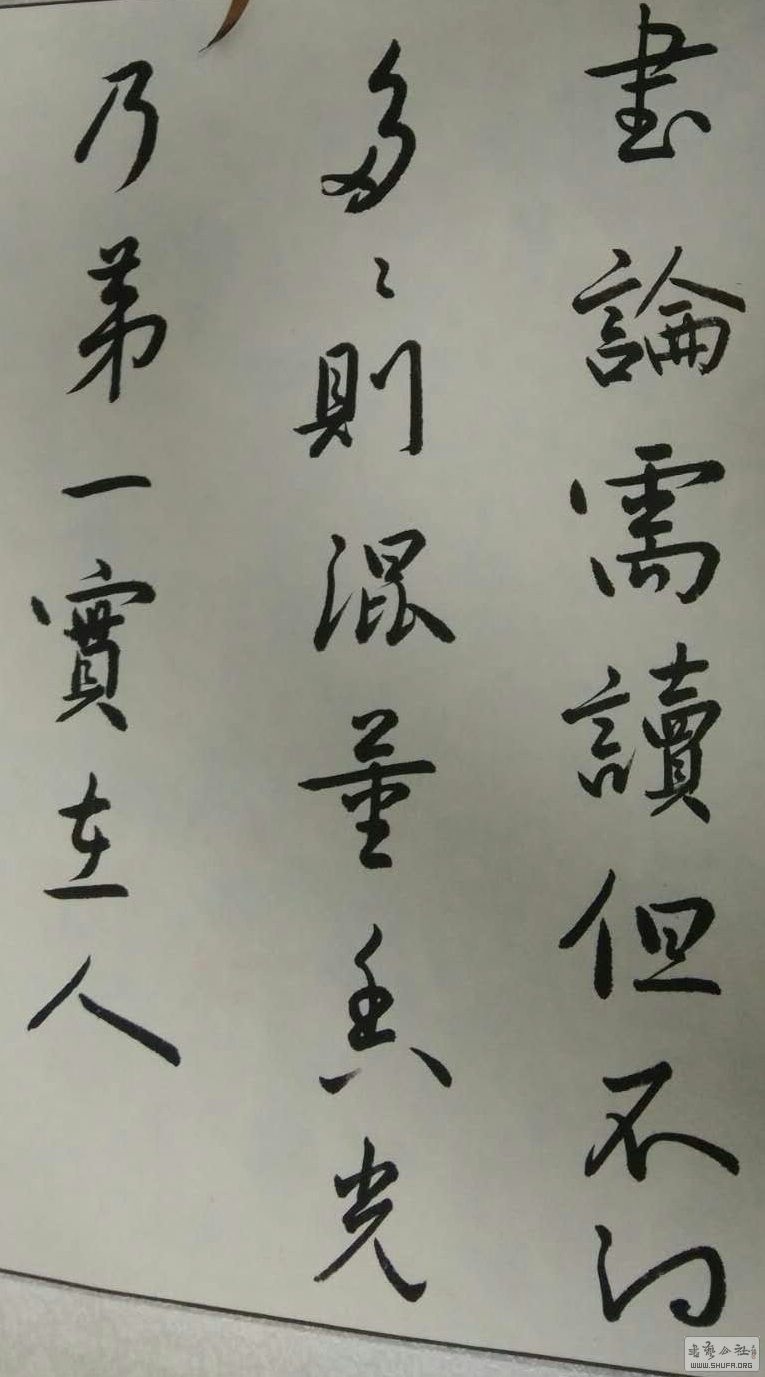 書論需讀但不
多〻則混董香光
乃第一實在人
書藝公社
WWW.SHUFA.ORG